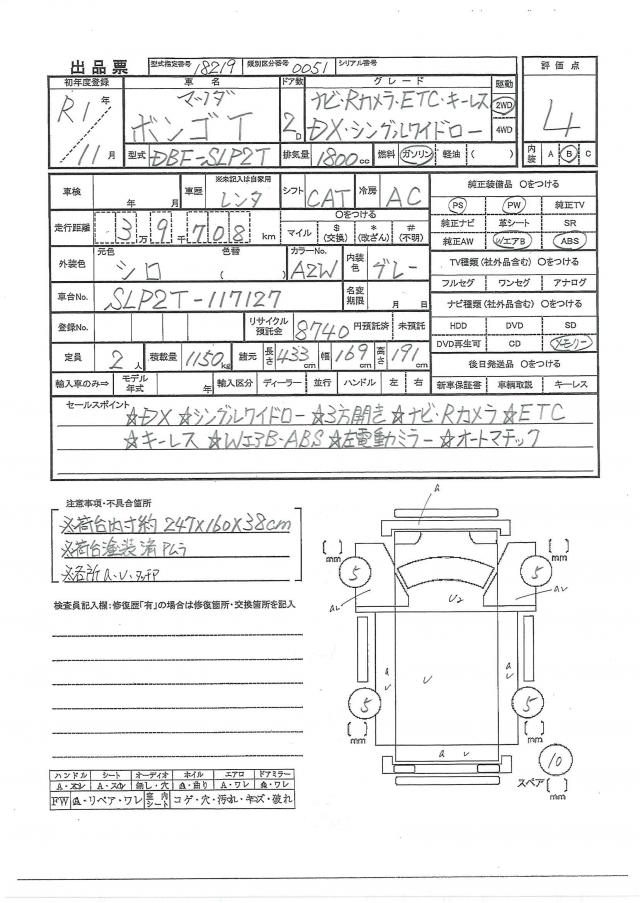 出品票 型式指定番号 18219 類別区分番号 0051 シリアル番号
初年度登録 車名 ドア数 グレード 駆動 評価点
R1年 マツダ ナビ・Rカメラ・ETC・キーレス 2WD 4
11月 ボンゴT 2D DX・シングルワイドロー 4WD
型式 DBF-SLP2T 排気量 1800cc 燃料 ガソリン・軽油・( ) 内装 A B C
車検 年 月 車歴 ※未記入は自家用 レンタ シフト CAT 冷房 AC 純正装備品 〇をつける
PS PW 純正TV
走行距離 3万9千708km 〇をつける マイル $(交換) *(改ざん) #(不明) 純正ナビ 革シート SR
純正AW WエアB ABS
外装色 元色 シロ 色替 ( ) カラーNo. A2W 内装色 グレー TV種類(社外品含む) 〇をつける
フルセグ ワンセグ アナログ
車台No. SLP2T-117127 名変期限 月 日 ナビ種類(社外品含む) 〇をつける
登録No. リサイクル預託金 8740円預託済 未預託 HDD DVD SD
DVD再生可 CD メモリー
定員 2人 積載量 1150kg 諸元 長さ433cm 幅169cm 高さ191cm 後日発送品 〇をつける
輸入車のみ⇒ モデル年式 年 輸入区分 ディーラー・並行 ハンドル 左・右 新車保証書 車輌取説 キーレス
セールスポイント
☆DX ☆シングルワイドロー ☆3方開き ☆ナビ・Rカメラ ☆ETC
☆キーレス ☆WエアB・ABS ☆左電動ミラー ☆オートマチック
注意事項・不具合箇所
※荷台内寸約 247×160×38cm
※荷台塗装済ムラ
※各所A.U.タッチP
検査員記入欄:修復歴「有」の場合は修復箇所・交換箇所を記入
a
[ ]mm 5 [ ]mm 5
au U2 au
a U U a U
5 [ ]mm 5 [ ]mm
a U
10
スペア [ ]mm
ハンドル シート オーディオ ホイル エアロ ドアミラー
A・スレ A・スレ 無し・穴 A・曲り A・ワレ A・ワレ
FW A・リペア・ワレ 室内シート コゲ・穴・汚れ・キズ・破れ